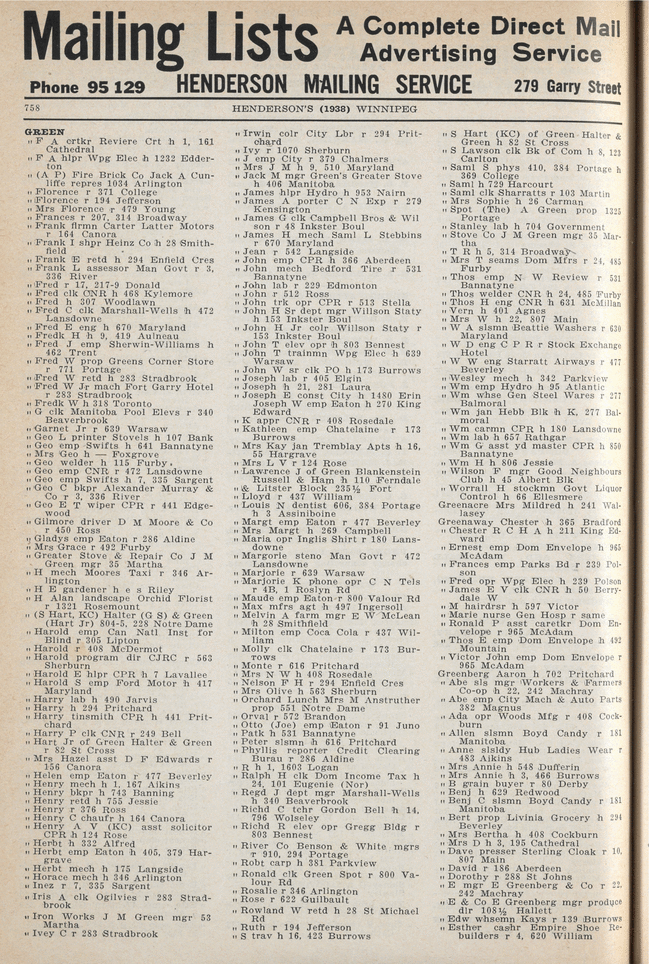 Mailing Lists
A Complete Direct Mail
Advertising Service
Phone 95 129
HENDERSON MAILING SERVICE
279 Garry Street
758
HENDERSON'S (1938) WINNIPEG
GREEN
" F A crtkr Reviere Crt h 1, 161
Cathedral
" F A hlpr Wpg Elec h 1232 Edder-
ton
" (A P) Fire Brick Co Jack A Cun-
liffe repres 1034 Arlington
" Florence r 371 College
" Florence r 194 Jefferson
" Mrs Florence r 479 Young
" Frances r 207, 314 Broadway
" Frank flrmn Carter Latter Motors
r 164 Canora
" Frank I shpr Heinz Co h 28 Smith-
field
" Frank E retd h 294 Enfield Cres
" Frank L assessor Man Govt r 3,
336 River
" Fred r 17, 217-9 Donald
" Fred clk CNR h 468 Kylemore
" Fred h 307 Woodlawn
" Fred C clk Marshall-Wells h 472
Lansdowne
" Fred E eng h 670 Maryland
" Fredk H h 9, 419 Aulneau
" Fred J emp Sherwin-Williams h
462 Trent
" Fred W prop Greens Corner Store
r 771 Portage
" Fred W retd h 283 Stradbrook
" Fred W Jr mach Fort Garry Hotel
r 283 Stradbrook
" Fredk W h 318 Toronto
" G clk Manitoba Pool Elevs r 340
Beaverbrook
" Garnet Jr r 639 Warsaw
" Geo L printer Stovels h 107 Bank
" Geo emp Swifts h 641 Bannatyne
" Mrs Geo h — Foxgrove
" Geo welder h 115 Furby
" Geo emp CNR r 472 Lansdowne
" Geo emp Swifts h 7, 335 Sargent
" Geo C bkpr Alexander Murray &
Co r 3, 336 River
" Geo E T wiper CPR r 441 Edge-
wood
" Gilmore driver D M Moore & Co
r 450 Ross
" Gladys emp Eaton r 286 Aldine
" Mrs Grace r 492 Furby
" Greater Stove & Repair Co J M
Green mgr 35 Martha
" H mech Moores Taxi r 346 Ar-
lington
" H E gardener h e s Riley
" H Alan landscape Orchid Florist
r 1321 Rosemount
" (S Hart, KC) Halter (G S) & Green
(Hart Jr) 804-5, 228 Notre Dame
" Harold emp Can Natl Inst for
Blind r 305 Lipton
" Harold r 408 McDermot
" Harold program dir CJRC r 563
Sherburn
" Harold E hlpr CPR h 7 Lavallee
" Harold S emp Ford Motor h 417
Maryland
" Harry lab h 490 Jarvis
" Harry h 294 Pritchard
" Harry tinsmith CPR h 441 Prit-
chard
" Harry P clk CNR r 249 Bell
" Hart Jr of Green Halter & Green
r 82 St Cross
" Mrs Hazel asst D F Edwards r
156 Canora
" Helen emp Eaton r 477 Beverley
" Henry mech h 1, 167 Aikins
" Henry bkpr h 743 Banning
" Henry retd h 755 Jessie
" Henry r 376 Ross
" Henry C chaufr h 164 Canora
" Henry A V (KC) asst solicitor
CPR h 124 Rose
" Herbt h 332 Alfred
" Herbt emp Eaton h 405, 379 Har-
grave
" Herbt mech h 175 Langside
" Horace mech h 346 Arlington
" Inez r 7, 335 Sargent
" Iris A clk Ogilvies r 283 Strad-
brook
" Iron Works J M Green mgr 53
Martha
" Ivey C r 283 Stradbrook
" Irwin colr City Lbr r 294 Prit-
chard
" Ivy r 1070 Sherburn
" J emp City r 379 Chalmers
" Mrs J M h 9, 510 Maryland
" Jack M mgr Green's Greater Stove
h 406 Manitoba
" James hlpr Hydro h 953 Nairn
" James A porter C N Exp r 279
Kensington
" James G clk Campbell Bros & Wil
son r 48 Inkster Boul
" James H mech Saml L Stebbins
r 670 Maryland
" Jean r 542 Langside
" John emp CPR h 366 Aberdeen
" John mech Bedford Tire r 531
Bannatyne
" John lab r 229 Edmonton
" John r 512 Ross
" John trk opr CPR r 513 Stella
" John H Sr dept mgr Willson Staty
h 153 Inkster Boul
" John H Jr colr Willson Staty r
153 Inkster Boul
" John T elev opr h 803 Bennest
" John T trainmn Wpg Elec h 639
Warsaw
" John W sr clk PO h 173 Burrows
" Joseph lab r 405 Elgin
" Joseph h 21, 281 Laura
" Joseph E const City h 1480 Erin
Joseph W emp Eaton h 270 King
Edward
" K appr CNR r 408 Rosedale
" Kathleen emp Chatelaine r 173
Burrows
" Mrs Kay jan Tremblay Apts h 16,
55 Hargrave
" Mrs L V r 124 Rose
" Lawrence J of Green Blankenstein
Russell & Ham h 110 Ferndale
" & Lister Block 235½ Fort
" Lloyd r 437 William
" Louis N dentist 606, 384 Portage
h 3 Assiniboine
" Margt emp Eaton r 477 Beverley
" Mrs Margt h 269 Campbell
" Maria opr Inglis Shirt r 180 Lans-
downe
" Margorie steno Man Govt r 472
Lansdowne
" Marjorie r 639 Warsaw
" Marjorie K phone opr C N Tels
r 4B, 1 Roslyn Rd
" Maude emp Eaton r 800 Valour Rd
" Max mfrs agt h 497 Ingersoll
" Melvin A farn mgr E W McLean
h 28 Smithfield
" Milton emp Coca Cola r 437 Wil-
liam
" Molly clk Chatelaine r 173 Bur-
rows
" Monte r 616 Pritchard
" Mrs N W h 408 Rosedale
" Nelson F H r 294 Enfield Cres
" Mrs Olive h 563 Sherburn
" Orchard Lunch Mrs M Anstruther
prop 551 Notre Dame
" Orval r 572 Brandon
" Otto (Joe) emp Eaton r 91 Juno
" Patk h 531 Bannatyne
" Peter slsmn h 616 Pritchard
" Phyllis reporter Credit Clearing
Burau r 286 Aldine
" R h 1, 1603 Logan
" Ralph H clk Dom Income Tax h
24, 101 Eugenie (Nor)
" Regd J dept mgr Marshall-Wells
h 340 Beaverbrook
" Richd C tchr Gordon Bell h 14,
796 Wolseley
" Richd R elev opr Gregg Bldg r
803 Bennest
" River Co Benson & White mgrs
r 910, 294 Portage
" Robt carp h 381 Parkview
" Ronald clk Green Spot r 800 Va-
lour Rd
" Rosalie r 346 Arlington
" Rose r 622 Guilbault
" Rowland W retd h 28 St Michael
Rd
" Ruth r 194 Jefferson
" S trav h 16, 423 Burrows
" S Hart (KC) of Green Halter &
Green h 82 St Cross
" S Lawson clk Bk of Com h 8, 123
Carlton
" Saml S phys 410, 384 Portage h
369 College
" Saml h 729 Harcourt
" Saml clk Sharratts r 103 Martin
" Mrs Sophie h 26 Carman
" Spot (The) A Green prop 1325
Portage
" Stanley lab h 704 Government
" Stove Co J M Green mgr 35 Mar-
tha
" T R h 5, 314 Broadway
" Mrs T seams Dom Mfrs r 24, 485
Furby
" Thos emp N W Review r 531
Bannatyne
" Thos welder CNR h 24, 485 Furby
" Thos H eng CNR h 631 McMillan
" Vern h 401 Agnes
" Mrs W h 22, 807 Main
" W A slsmn Beattie Washers r 630
Maryland
" W D eng C P R r Stock Exchange
Hotel
" W W eng Starratt Airways r 477
Beverley
" Wesley mech h 342 Parkview
" Wm emp Hydro h 95 Atlantic
" Wm whse Gen Steel Wares r 277
Balmoral
" Wm jan Hebb Blk h K, 277 Bal-
moral
" Wm carmn CPR h 180 Lansdowne
" Wm lab h 657 Rathgar
" Wm G asst yd master CPR h 850
Bannatyne
" Wm H h 806 Jessie
" Wilson F mgr Good Neighbours
Club h 45 Albert Blk
" Worrall H stockmn Govt Liquor
Control h 66 Ellesmere
Greenacre Mrs Mildred h 241 Wal-
lasey
Greenaway Chester h 365 Bradford
" Chester R C H A h 211 King Ed-
ward
" Ernest emp Dom Envelope h 965
McAdam
" Frances emp Parks Bd r 239 Pol-
son
" Fred opr Wpg Elec h 239 Polson
" James E V clk CNR h 50 Berry-
dale W
" M hairdrsr h 597 Victor
" Marie nurse Gen Hosp r same
" Ronald P asst caretkr Dom En-
velope r 965 McAdam
" Thos E emp Dom Envelope h 492
Mountain
" Victor John emp Dom Envelope r
965 McAdam
Greenberg Aaron h 702 Pritchard
" Abe sls mgr Workers & Farmers
Co-op h 22, 242 Machray
" Abe emp City Mach & Auto Parts
382 Magnus
" Ada opr Woods Mfg r 408 Cock-
burn
" Allen slsmn Boyd Candy r 181
Manitoba
" Anne slsldy Hub Ladies Wear r
483 Aikins
" Mrs Annie h 548 Dufferin
" Mrs Annie h 3, 466 Burrows
" B grain buyer r 80 Derby
" Benj h 629 Redwood
" Benj C slsmn Boyd Candy r 181
Manitoba
" Bert prop Livinia Grocery h 294
Beverley
" Mrs Bertha h 408 Cockburn
" Mrs D h 3, 195 Cathedral
" Dave presser Sterling Cloak r 10,
807 Main
" David r 186 Aberdeen
" Dorothy r 288 St Johns
" E mgr E Greenberg & Co r 22,
242 Machray
" E & Co E Greenberg mgr produce
dir 108½ Hallett
" Edw whsemn Kays r 139 Burrows
" Esther cashr Empire Shoe Re-
builders r 4, 620 William